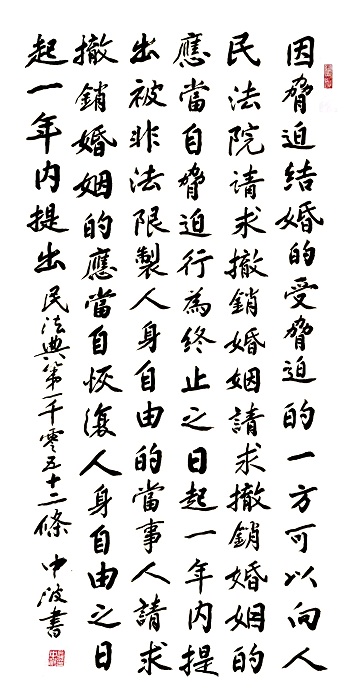 因脅迫結婚的受脅迫的一方可以向人
民法院請求撤銷婚姻請求撤銷婚姻的
應當自脅迫行為終止之日起一年內提
出被非法限製人身自由的當事人請求
撤銷婚姻的應當自恢復人身自由之日
起一年內提出 民法典第一千零五十二條 中波書